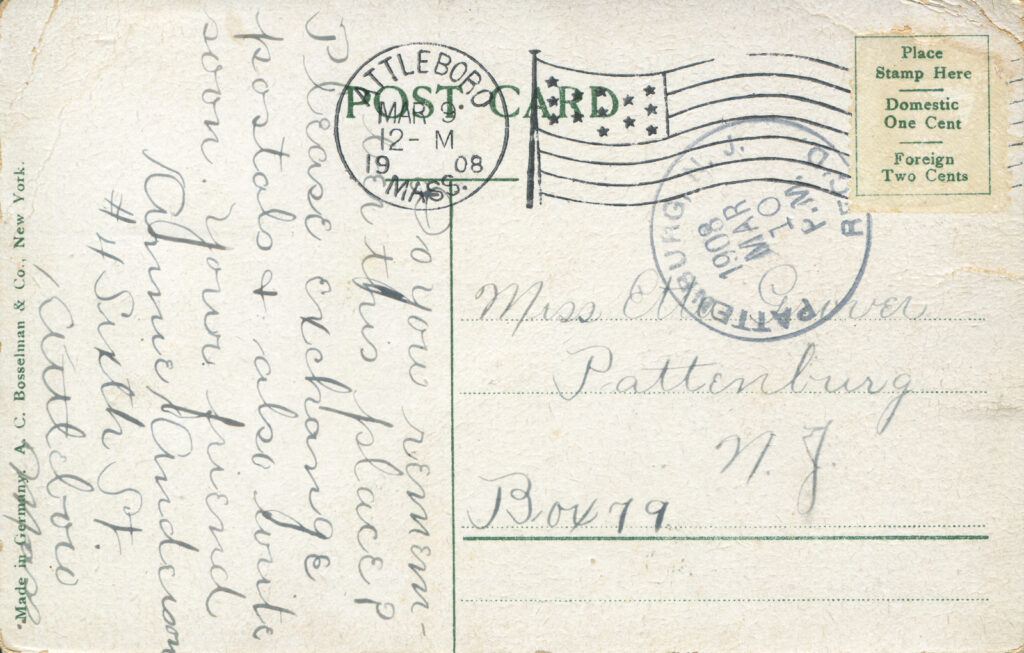 POST CARD
ATTLEBORO
MAR 9
12-M
1908
MASS.
Place
Stamp Here
Domestic
One Cent
Foreign
Two Cents
PATTENBURG, N.J.
1908
MAR
10
P.M.
REC'D
Do you remem-
ber this place?
Please exchange
postals & also write
soon. Your friend
Annie Anderson
#4 Sixth St
Attleboro
Mass
Miss Grover
Pattenburg
N. J.
Box 79
Made in Germany. A. C. Bosselman & Co., New York.